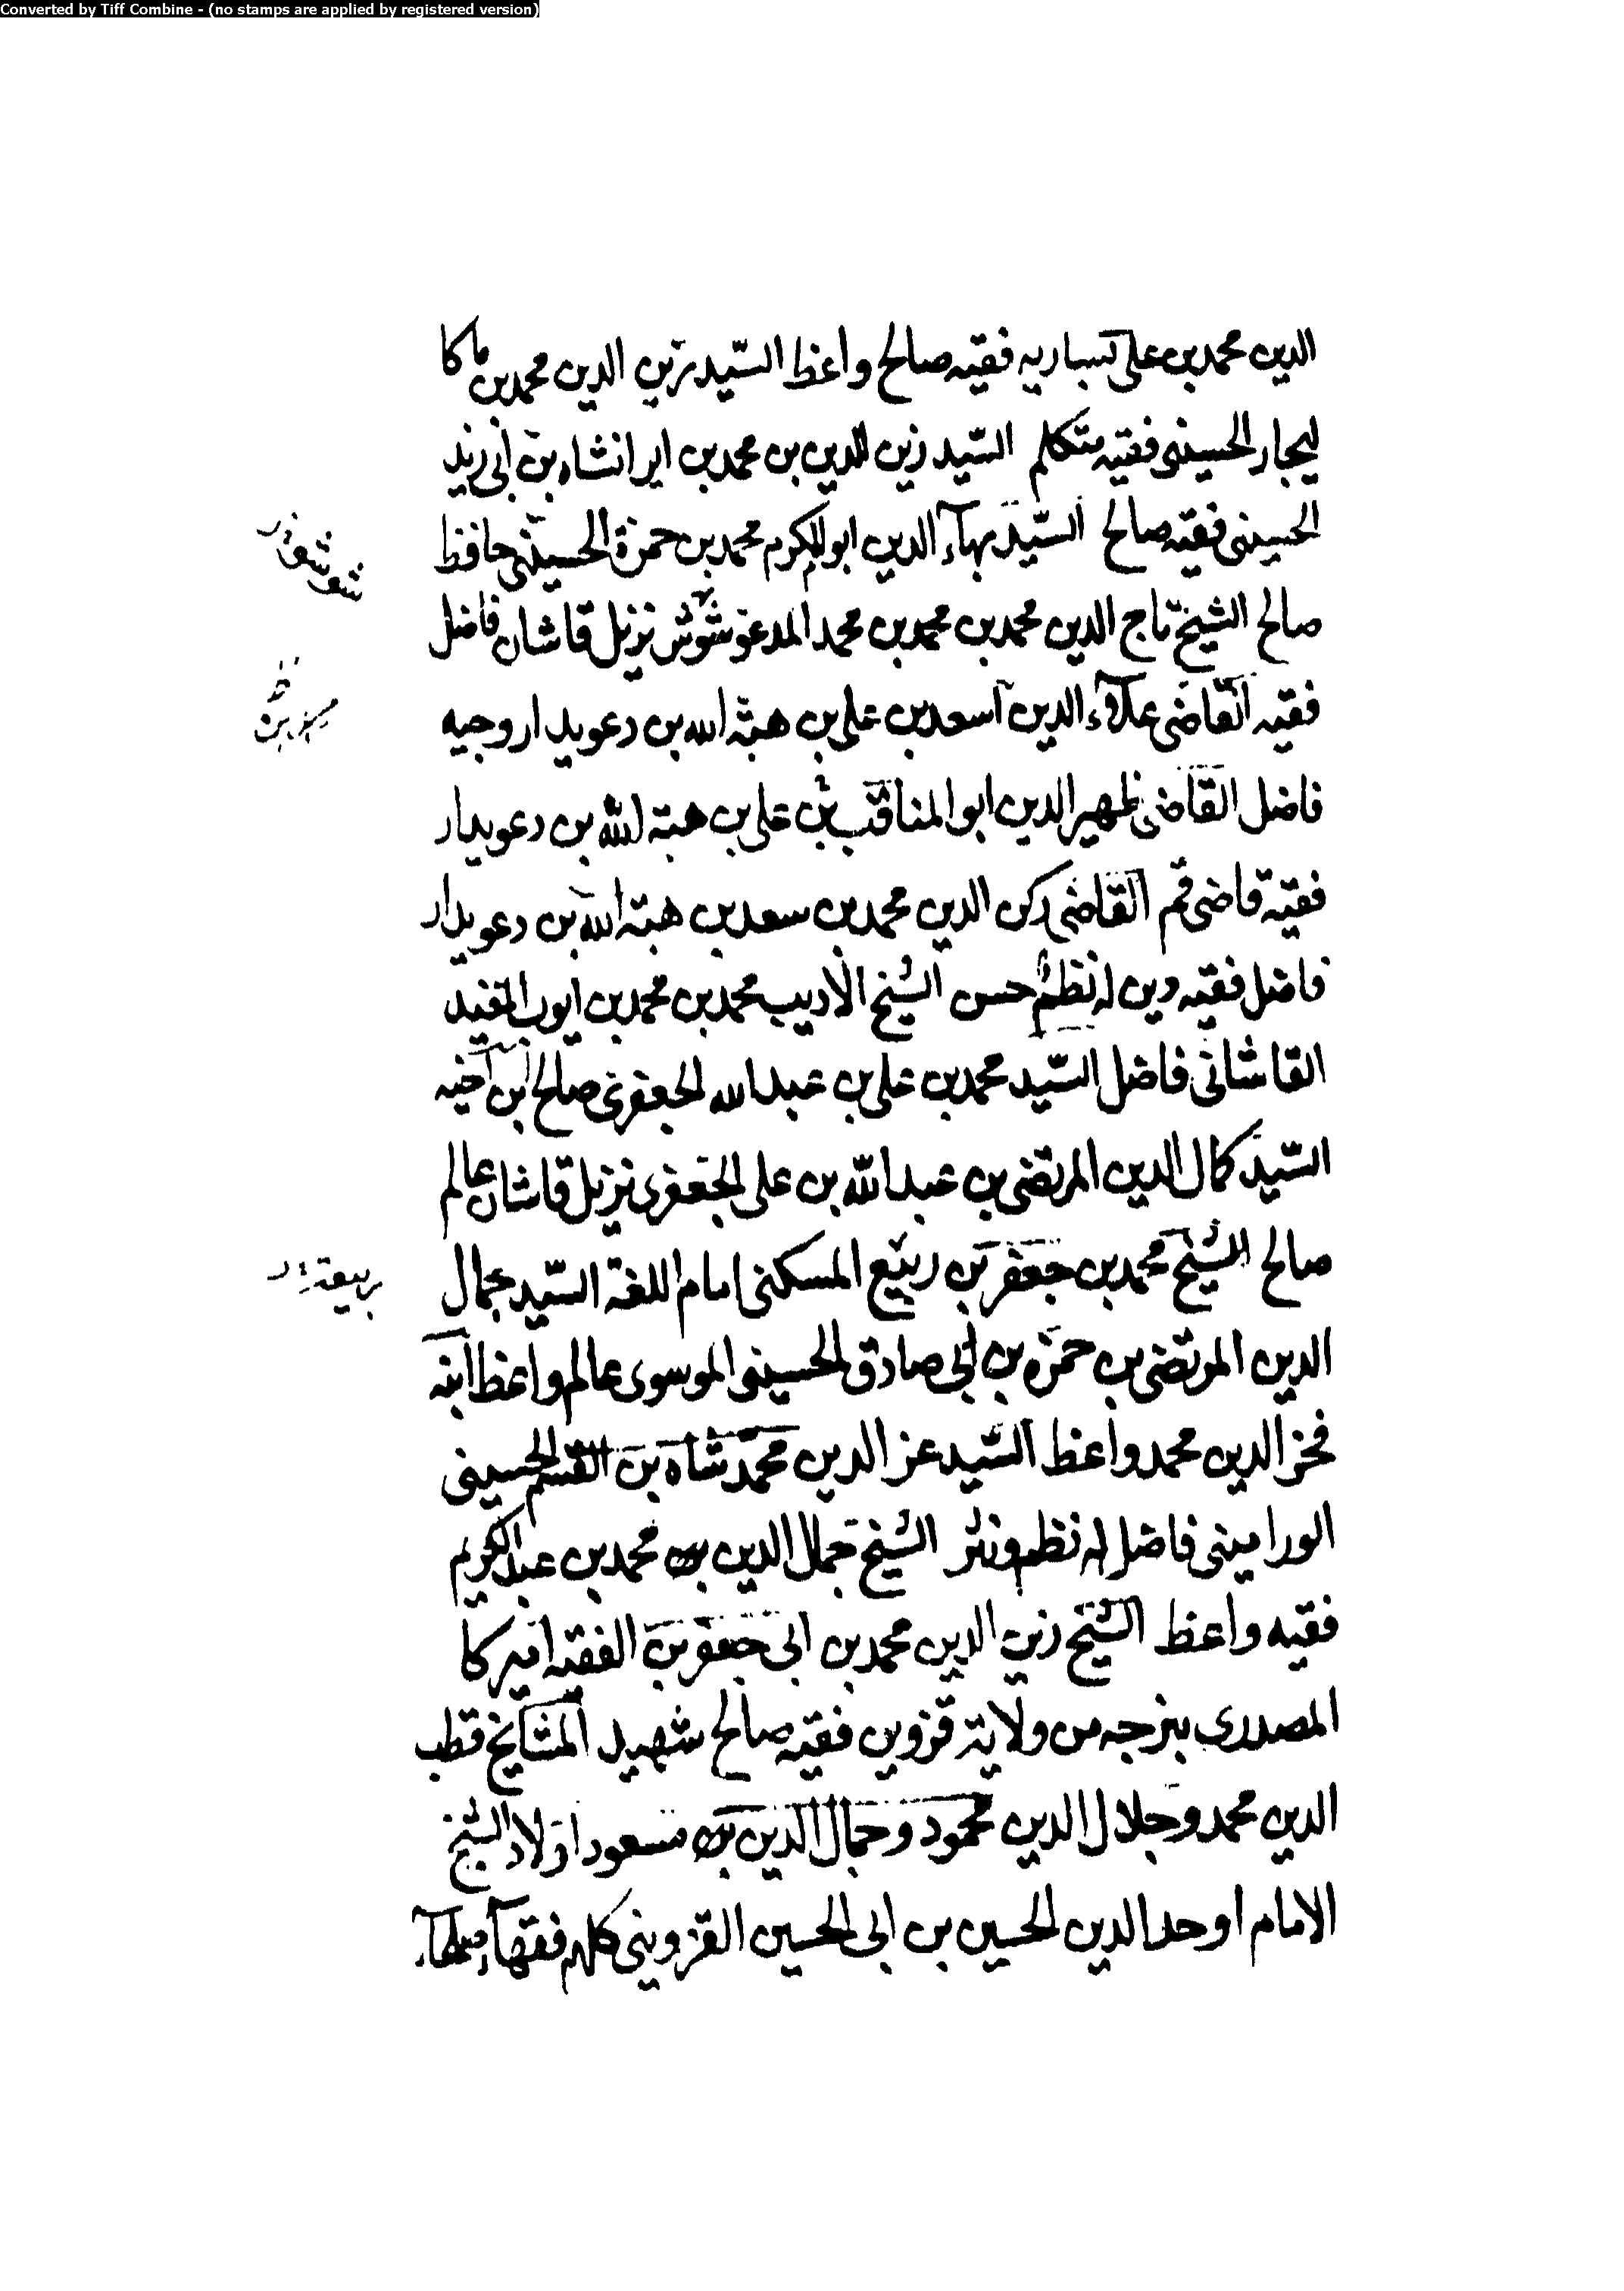 Converted by Tiff Combine - (no stamps are applied by registered version)
الدين محمد بن على فقيه صالح واعظ السّيد زين الدين محمد بن ماكا
ليجار الحسينى فقيه متكلم السّيد زين الدين بن محمد بن ايرانشاه بن ابى زيد
الحسينى فقيه صالح السّيد بهآء الدين ابو المكرم محمد بن حمزة الحسينى حافظ
صالح الشيخ تاج الدين محمد بن محمد بن محمد المدعو شوشو نزيل قاشان فاضل
فقيه القاضى علاء الدين اسعد بن على بن هبة الله بن دعويدار وجيه
فاضل القاضى ظهير الدين ابو المناقب بن على بن هبة الله بن دعويدار
فقيه قاضى قم القاضى ركن الدين محمد بن سعد بن هبة الله بن دعويدار
فاضل فقيه دين له نظم حسن الشيخ الاديب محمد بن محمد بن ايوب المفيد
القاشانى فاضل السّيد محمد بن على بن عبدالله الجعفرى صالح ابن اخيه
السّيد كمال الدين المرتضى بن عبدالله بن على الجعفرى نزيل قاشان عالم
صالح الشيخ محمد بن جعفر بن ربيع المسكنى امام اللغة السّيد جمال
الدين المرتضى بن حمزه بن ابى صادق الحسينى الموسوى عالم واعظ ابنه
فخر الدين محمد واعظ السّيد عز الدين محمد شاه بن القسم الحسينى
الورامينى فاضل له نظم ونثر الشيخ جمال الدين محمد بن عبد الكريم
فقيه واعظ الشيخ زين الدين محمد بن ابى جعفر بن الفقيه اميركا
المصدرى ببزجه من ولاية قزوين فقيه صالح شهيد المشايخ قطب
الدين محمد وجلال الدين محمود وجمال الدين مسعود اولاد الشيخ
الامام اوحد الدين الحسين بن ابى الحسين القزوينى كلهم فقهآء صلحآء
شوشو
ربيعة